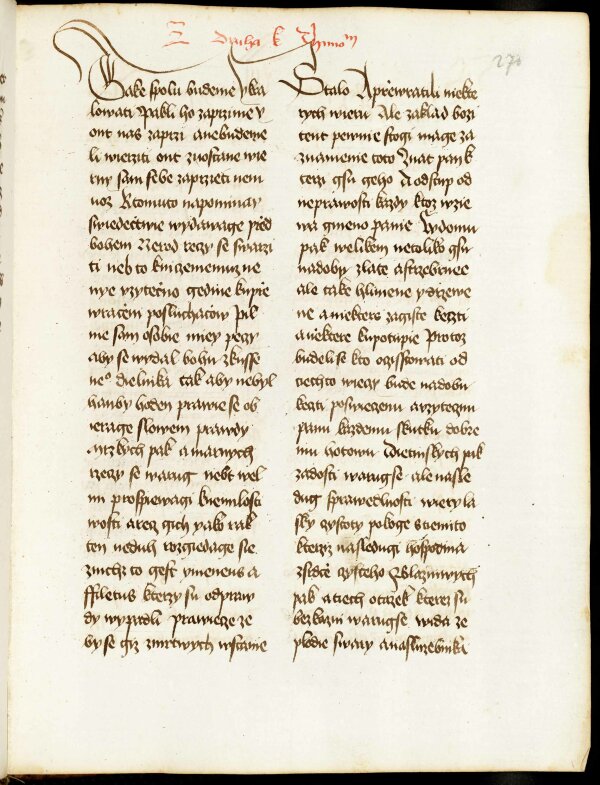 Druha k Thimo
27
Take spolu budeme kra
lowati Pakli ho zaprzime y
ont nas zaprzi anebudeme
li wierziti ont zuostane wie
rny sam sebe zaprzieti nem
noz Ktomuto napominay
swiedectwie wydawage przed
bohem Nerod rzeczy se swarzi
ti neb to knizemennuz ne
nye vzytecno gedine kupie
wracem posluchaczow Pil
ne sam osobie miey peczy
aby se wydal bohu zkusse
neo dielnika tak aby nebyl
hanby hoden prawie se ob
ierage slowem prawdy
Mrzkych pak a marnych
rzeczy se warug nebt wel
mi prospiewagi knemilosti
wosti a rzecz gich yako rak
ten neduh rozgiedage se
zmichz to gest ymeneus a
ffiletus kterzy su od praw
dy wypadli prawiecze ze
by se giz zmrtwych wstanie
Stalo A przewratili niekte
rych wieru Ale zaklad bozi
tent pewnie stogi mage za
znamenie toto Znat pan k
terzi gsu geho A odstup od
neprawosti kazdy ktoz wzie
wa gmeno panie Wdomu
pak welikem netoliko gsu
nadoby zlate astrzebrnee
ale take hlinene y drzewe
ne a niektere zagiste keczti
aniektere kupotupie Protoz
budeli se kto oczisstiowati od
tiechto wieczy bude nadobu
keczti poswieczenu avzytecznu
panu kkazdemu skutku dobre
mu hotowu Dietinskych pak
zadosti warugse ale nasle
dug sprawedlnosti wiery la
sky czystoty pokoge s tiemito
kterziz nasledugi hospodina
zsrdce czysteho Blaznowych
pak a tiech otazek kterez su
bez kazni warugse wieda ze
plodie swary a na sluzebnika